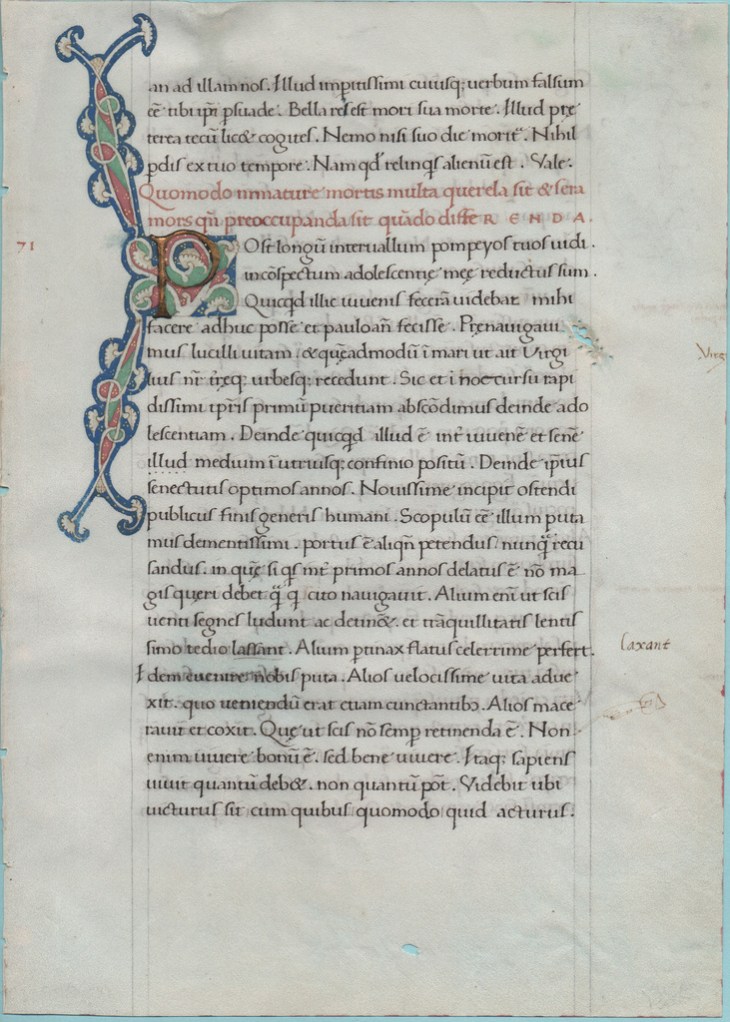 an ad illam nos. Illud imperitissimi cuiusq; uerbum falsum
cē tibi ip̄i psuade. Bella res est mori sua morte. Illud prę
terea tecū lic& cogites. Nemo nisi suo die moritᷣ. Nihil
pdis ex tuo tempore. Nam qđ relinqs alienū est. Vale.
Quomodo inmature mortis multa querela sit & sera
mors qn̄ preoccupanda sit quādo diffeRENDA.
71
POst longū interuallum pompeyos tuos uidi.
in cōspectum adolescentię meę reductus sum.
Quicqd illic iuuenis fecerā uidebar mihi
facere adhuc posse et paulo an̄ fecisse. Prenauigaui
mus lucilli uitam. & quēadmodū ī mari ut ait Virgi
Virgi
lius nr̄ tr̄ęq; urbesq; recedunt. Sic et ī hoc cursu rapi
dissimi tp̄ris primū pueritiam abscōdimus deinde ado
lescentiam. Deinde quicqd illud ē int̄ iuuenē et senē
illud medium ī utriusq; confinio positū. Deinde ip̄ius
senectutis optimos annos. Nouissime incipit ostendi
publicus finis generis humani. Scopulū cē illum puta
mus dementissimi. portus ē aliqn̄ petendus nunq̄ recu
sandus. in quē si qs int̄ primos annos delatus ē nō ma
gis queri debet q̄ q cito nauigauit. Alium eni ut scis
uenti segnes ludunt ac detin&. et trāquillitatis lentis
simo tedio lassant. Alium ptinax flatus celerrime perfert.
laxant
Idem euenire nobis puta. Alios uelocissime uita addu
xit. quo ueniendū erat etiam cunctantibꝰ. Alios mace
rauit et coxit. Quę ut scis nō semp retinenda ē. Non
enim uiuere bonū ē. sed bene uiuere. Itaq; sapiens
uiuit quantū deb&. non quantū pōt. Videbit ubi
uicturus sit cum quibus quomodo quid acturus.